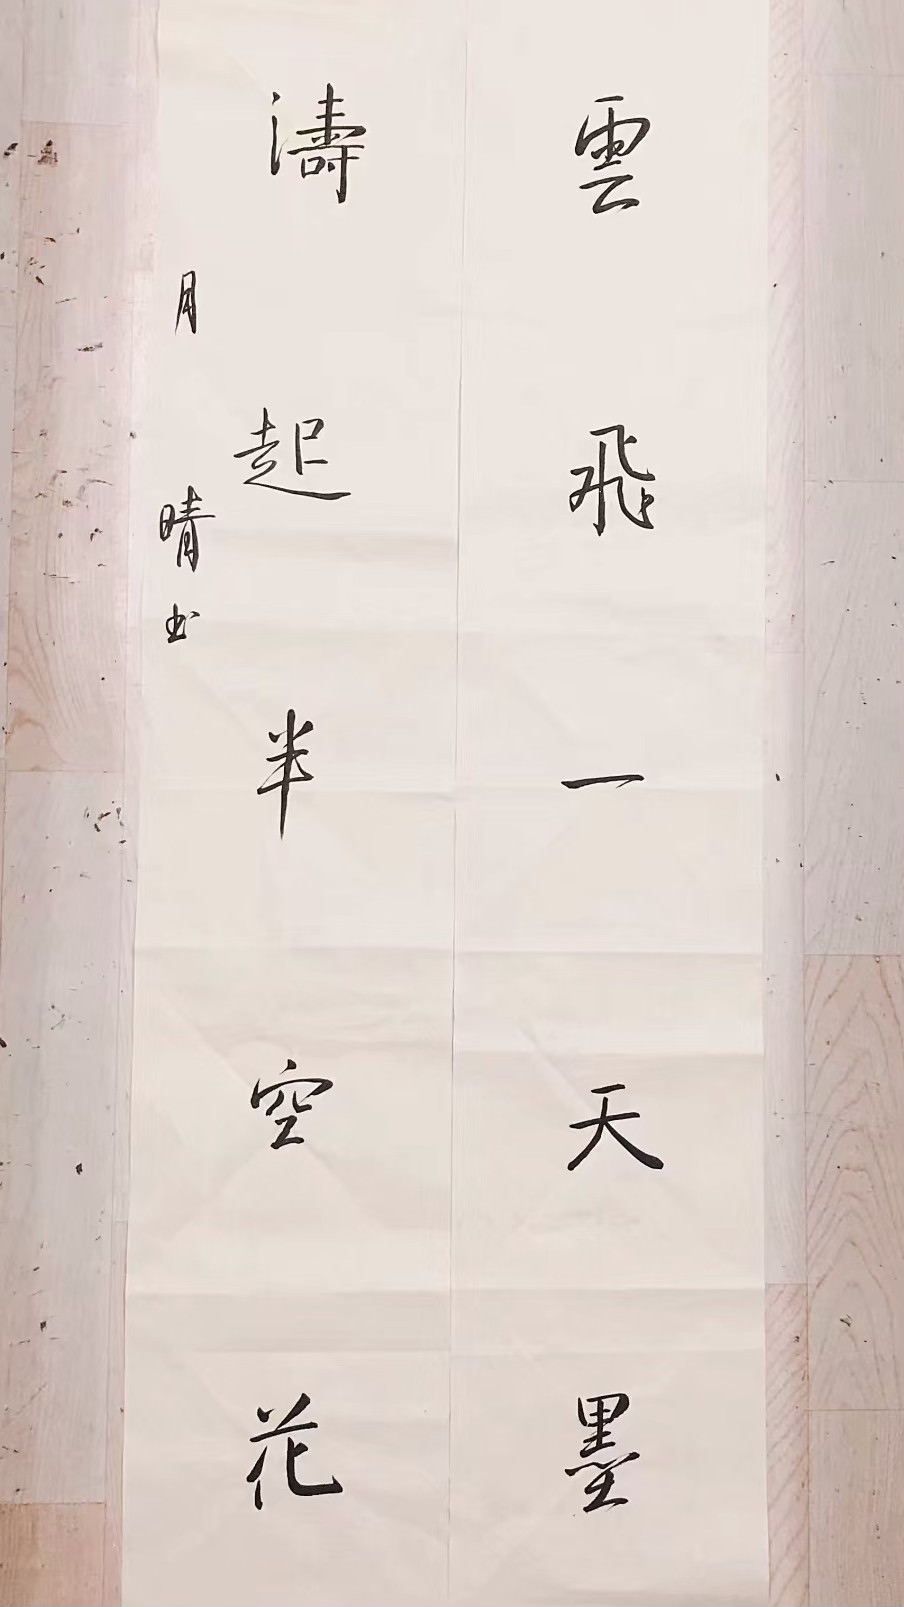 雲飛一天墨
濤起半空花
月晴书